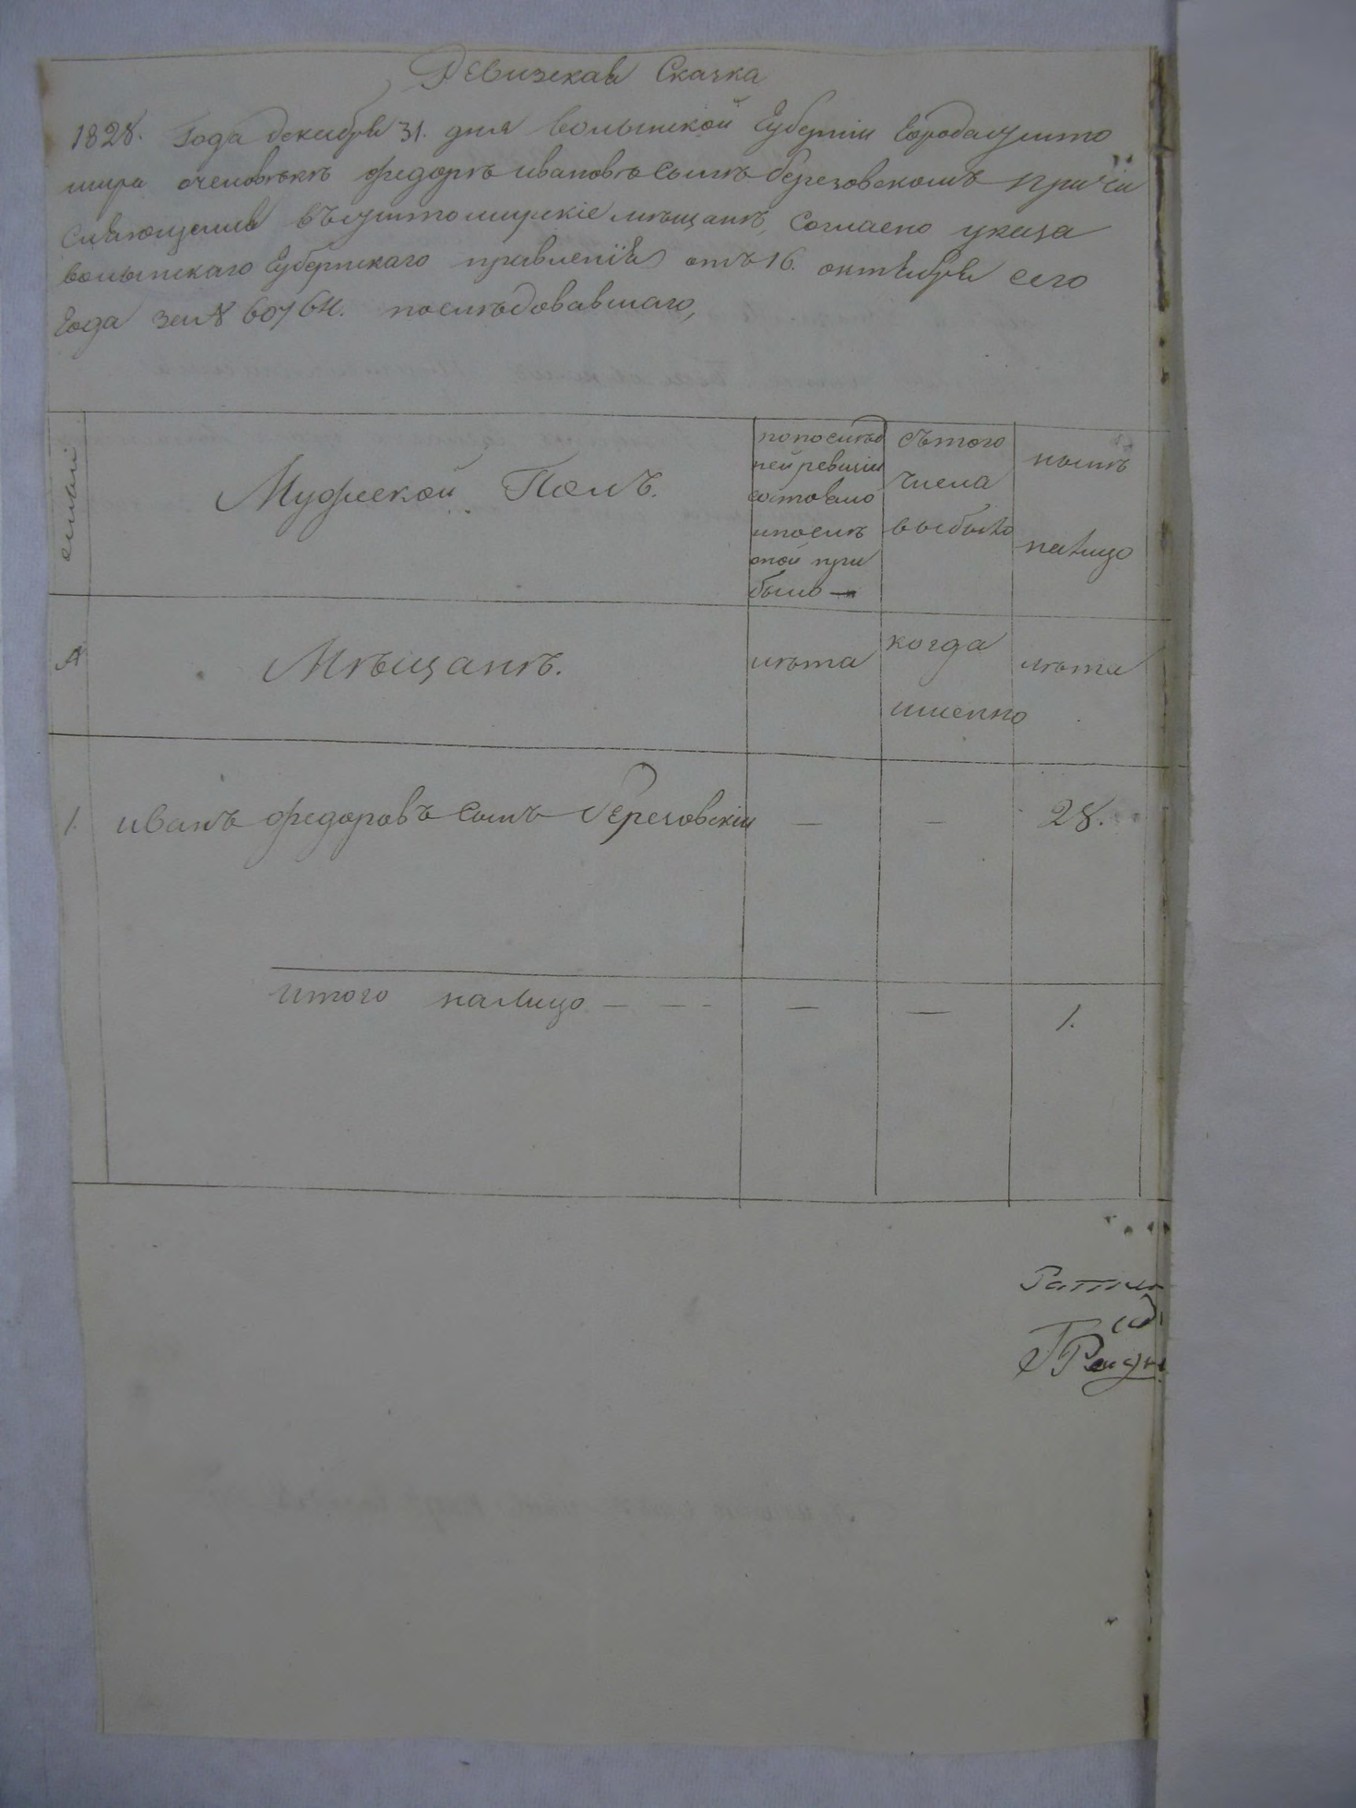 Ревизская Сказка
1828. Года декабря 31. дня волынской Губернии Города Жито
мира очеловѣкѣ федорѣ ивановѣ сынѣ березовскомъ причи
сляющемся въ житомирскіе мѣщанѣ, Согласно указа
волынскаго Губернскаго правленія отъ 16. октября сего
Года за № 60764. последовавшаго,
семьи
Мужеской Полъ.
по последней ревизіи состояло и после оной прибыло —
съ того числа выбыло
нынѣ на лицо
№
Мѣщанѣ.
лѣта
когда имянно
лѣта
1. иванъ федоровъ сынъ березовскіи — — 28.
итого на лицо — — - — — 1.